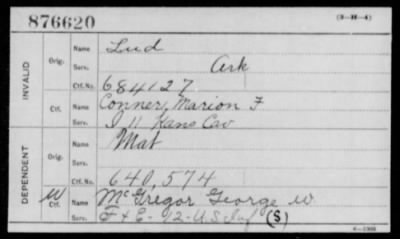 876620 (3-H-4)
INVALID
Orig. Name Lud
Serv. Ark
Ctf. No. 684127
Ctf. Name Conner, Marion F
Serv. I 11 Kans Cav
DEPENDENT
Orig. Name Mat
Serv.
Ctf. No. 640,574
W Ctf. Name McGregor George W
Serv. F & E- 12-U.S. Inf (S)